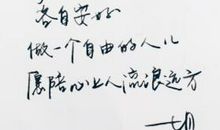 各自安好
做一个自由的人儿
愿陪心上人流浪远方